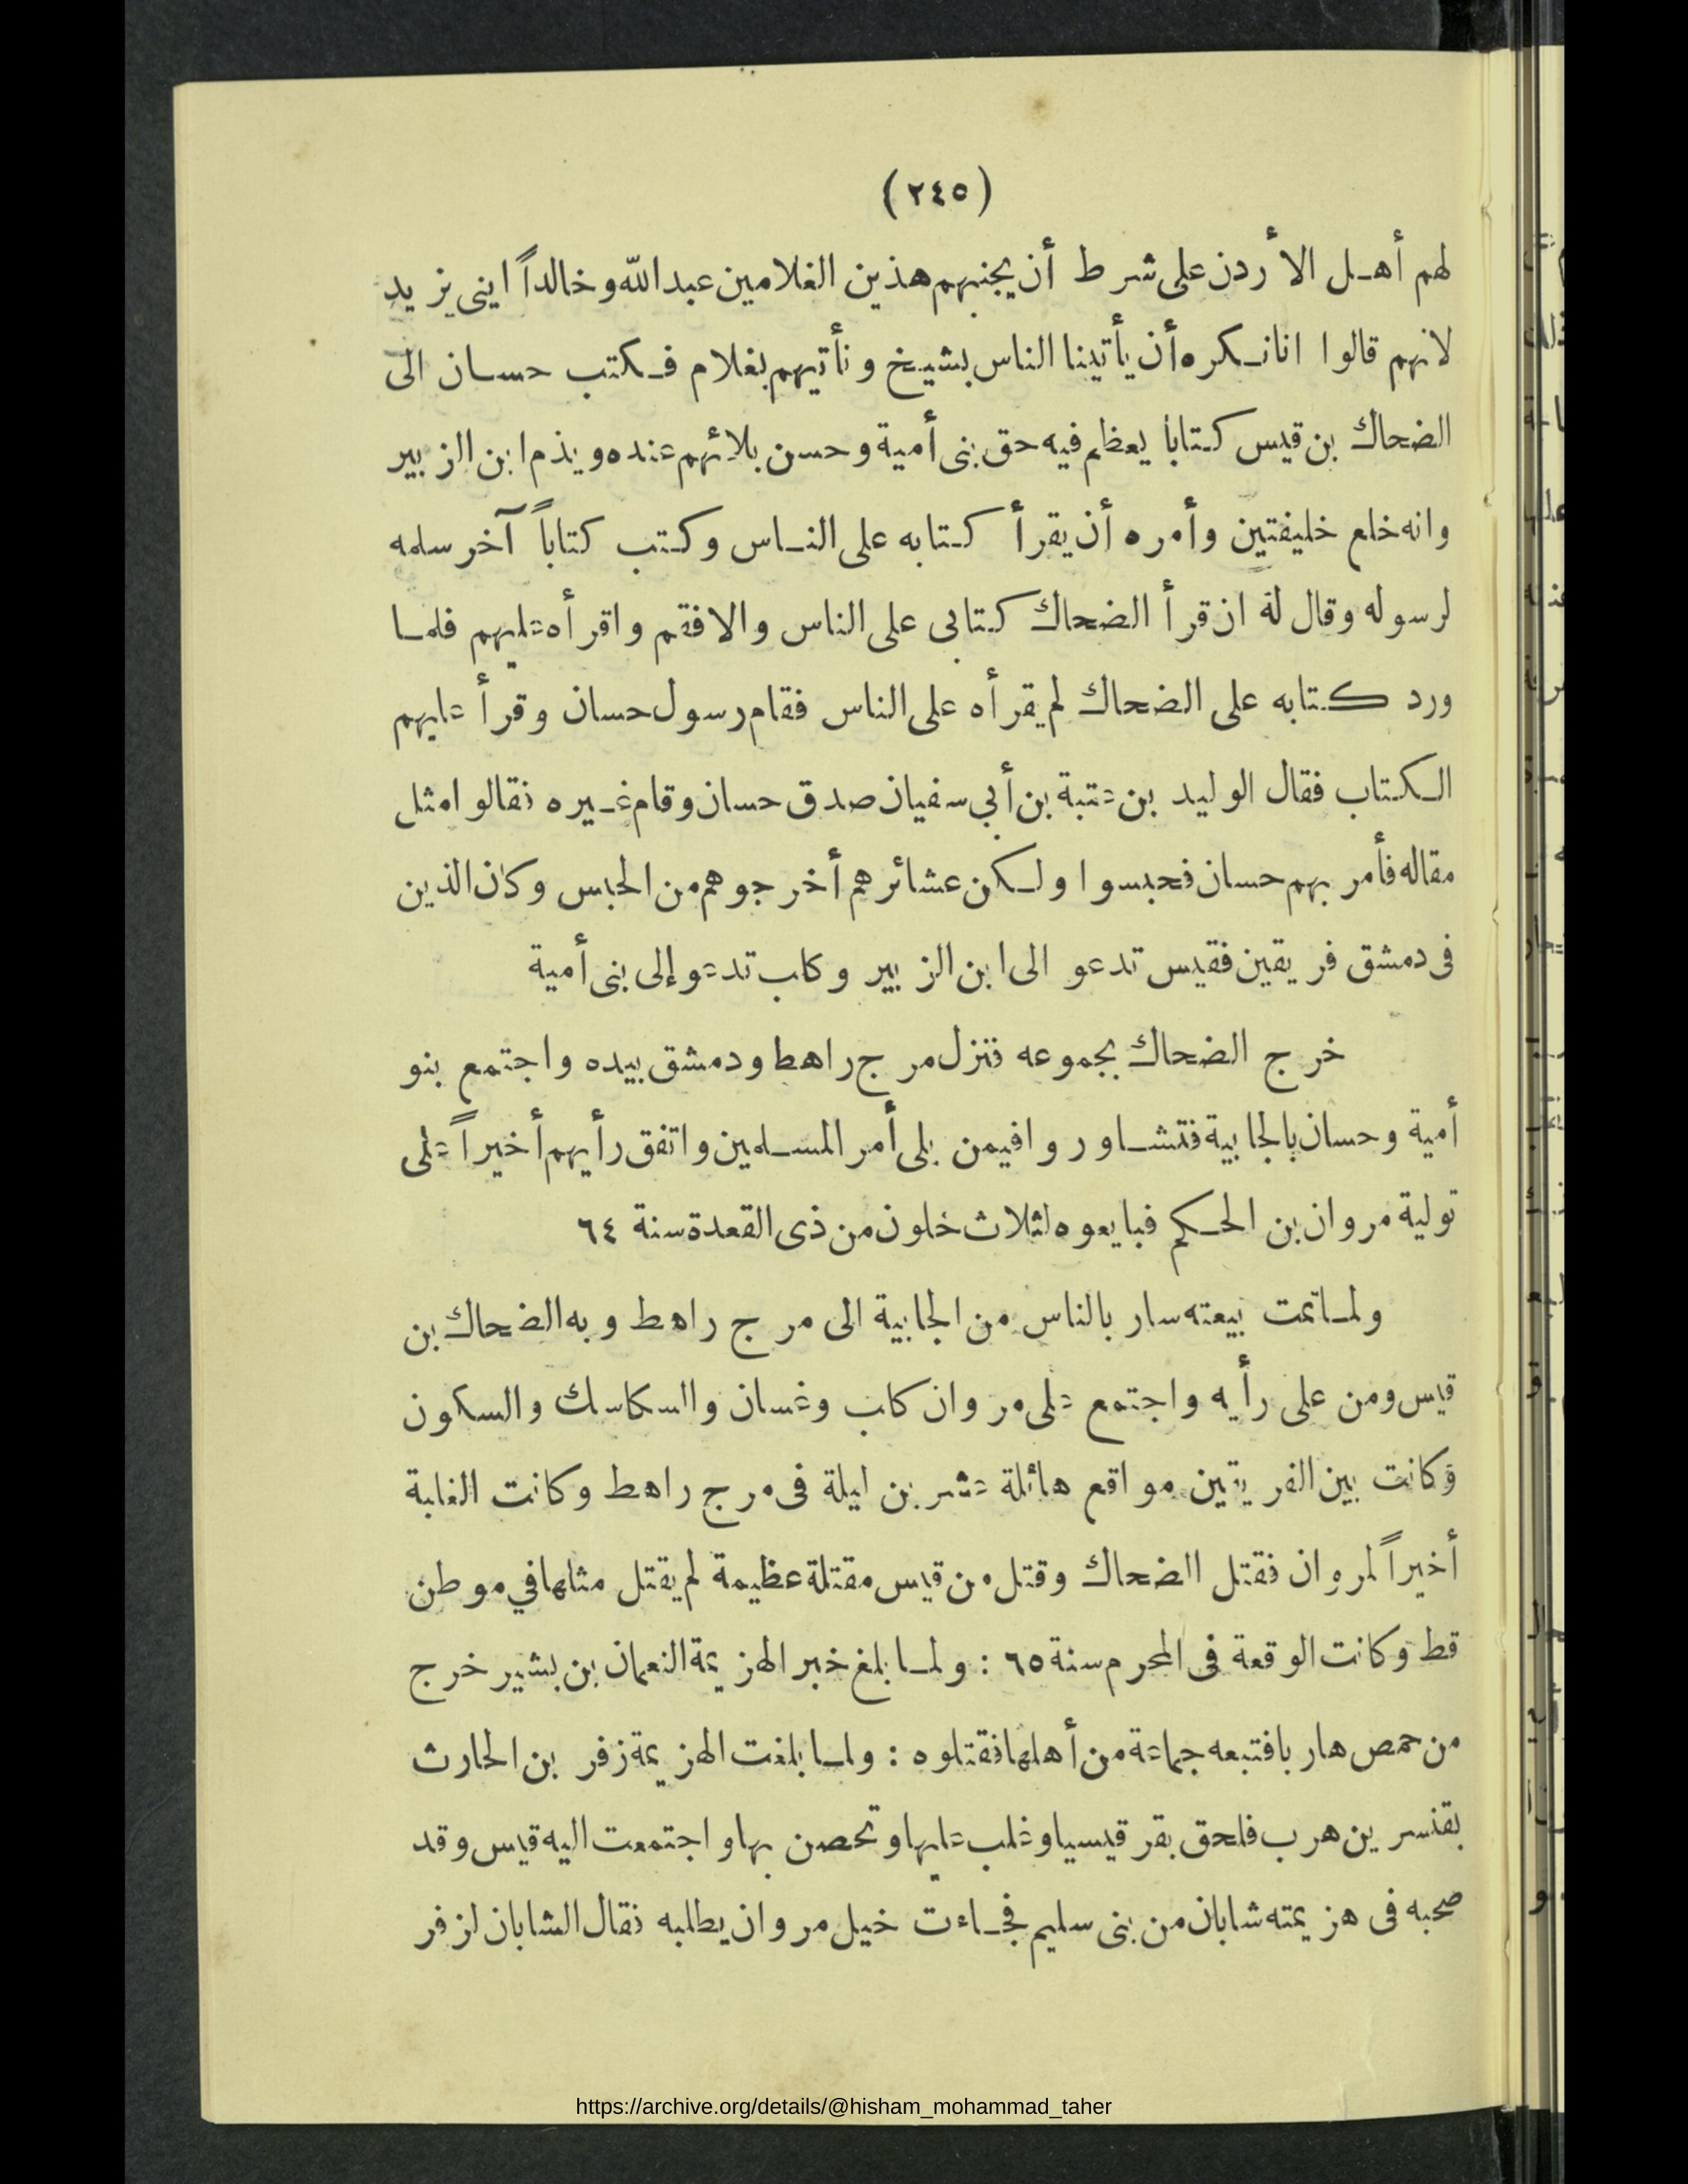 (٢٤٥)
لهم أهل الأردن على شرط أن يجنبهم هذين الغلامين عبد الله وخالداً ابنى يزيد
لانهم قالوا انا نكره أن يأتينا الناس بشيخ ونأتيهم بغلام فكتب حسان الى
الضحاك بن قيس كتابا يعظم فيه حق بنى أمية وحسن بلائهم عنده ويذم ابن الزبير
وانه خلع خليفتين وأمره أن يقرأ كتابه على الناس وكتب كتاباً آخر سلمه
لرسوله وقال له ان قرأ الضحاك كتابى على الناس والا فقم واقرأه عليهم فلما
ورد كتابه على الضحاك لم يقرأه على الناس فقام رسول حسان وقرأ عليهم
الكتاب فقال الوليد بن عتبة بن أبي سفيان صدق حسان وقام غيره فقالوا مثل
مقاله فأمر بهم حسان فحبسوا ولكن عشائرهم أخرجوهم من الحبس وكان الذين
فى دمشق فريقين فقيس تدعو الى ابن الزبير وكلب تدعو إلى بنى أمية
خرج الضحاك بجموعه فنزل مرج راهط ودمشق بيده واجتمع بنو
أمية وحسان بالجابية فتشاوروا فيمن يلى أمر المسلمين واتفق رأيهم أخيراً على
تولية مروان بن الحكم فبايعوه لثلاث خلون من ذى القعدة سنة ٦٤
ولما تمت بيعته سار بالناس من الجابية الى مرج راهط وبه الضحاك بن
قيس ومن على رأيه واجتمع على مروان كلب وغسان والسكاسك والسكون
وكانت بين الفريقين مواقع هائلة عشرين ليلة فى مرج راهط وكانت الغلبة
أخيراً لمروان فقتل الضحاك وقتل من قيس مقتلة عظيمة لم يقتل مثلها في موطن
قط وكانت الوقعة فى المحرم سنة ٦٥ : ولما بلغ خبر الهزيمة النعمان بن بشير خرج
من حمص هاربا فتبعه جماعة من أهلها فقتلوه : ولما بلغت الهزيمة زفر بن الحارث
بقنسرين هرب فلحق بقرقيسيا وغلب عليها وتحصن بها واجتمعت اليه قيس وقد
صحبه فى هزيمته شابان من بنى سليم فجاءت خيل مروان يطلبه فقال الشابان لزفر
https://archive.org/details/@hisham_mohammad_taher